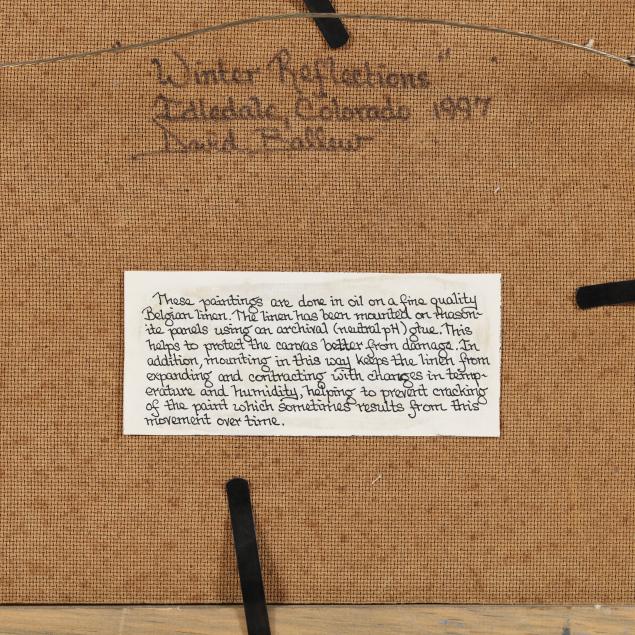 "Winter Reflections"
Idledale, Colorado 1997
David Ballew
These paintings are done in oil on a fine quality
Belgian linen. The linen has been mounted on mason-
ite panels using an archival (neutral pH) glue. This
helps to protect the canvas better from damage. In
addition, mounting in this way keeps the linen from
expanding and contracting with changes in temp-
erature and humidity, helping to prevent cracking
of the paint which sometimes results from this
movement over time.